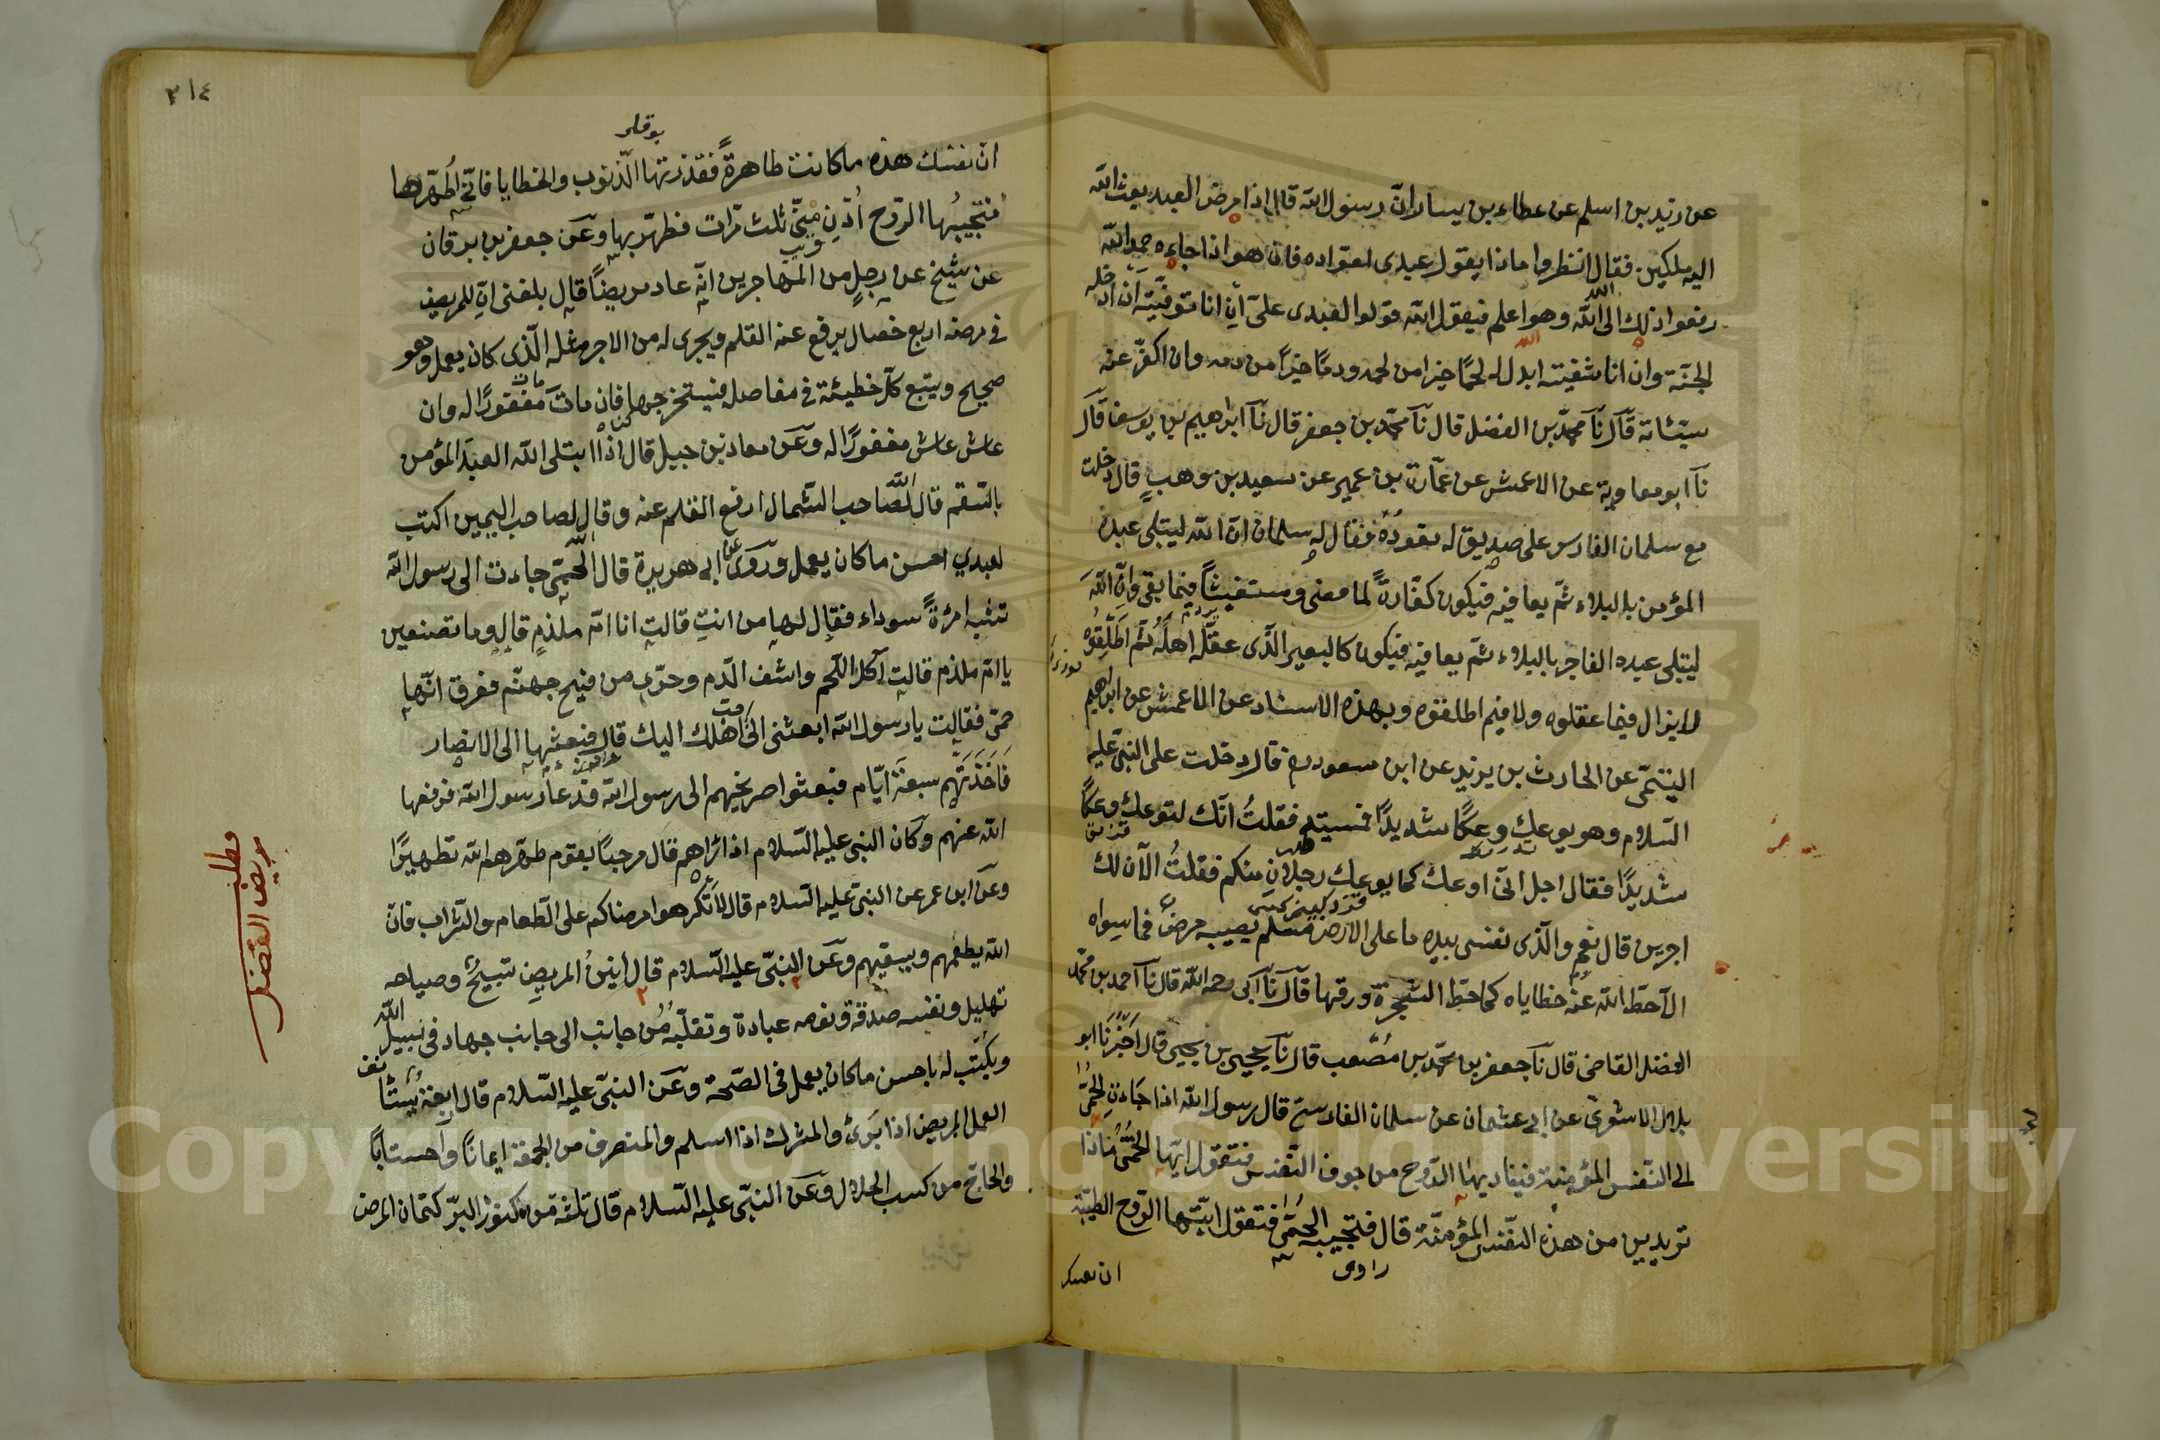 عن زيد بن اسلم عن عطاء بن يسار انّ رسول الله قال اذا مرض العبد يعث الله
اليه ملكين فقال انظروا ماذا يقول عبدى لعوّاده فان هو اذا جاءه حمد الله
رفعوا ذلك الى الله وهو اعلم فيقول الله قولوا لعبدى علىّ ان انا توفّيته ان ادخله
الجنّة وان انا شفيته ابدل له لحمًا خيرا من لحمه ودمًا خيرًا من دمه وان اكفّر عنه
سيّئاته قال نآ محمّد بن الفضل قال نآ محمّد بن جعفر قال نآ ابراهيم بن يوسف قال
نآ ابو معاوية عن الاعمش عن عمّارة بن عمير عن سعيد بن وهبٍ قال دخلت
مع سلمان الفارس على صديق له نعودهُ فقال له سلمان انّ الله ليبتلى عبده
المؤمن بالبلاء ثمّ يعافيه فيكون كفّارةً لما مضى ومستغيثاً فيما بقى وانّ اللهَ
ليبتلى عبده الفاجر بالبلاء ثمّ يعافيه فيكون كالبعير الّذى عقلّه اهلُهُ ثمّ اَطْلِقُوهُ
لا يزال فيما عقلوه ولا فيم اطلقوه وبهذه الاسناد عن الاعمش عن ابراهيم
التيمّى عن الحارث بن يزيد عن ابن مسعود رض قال دخلت على النبىّ عليه
السّلام وهو يوعك وعكًا شديدًا فمسيته فقلتُ انّك لتوعك وعكًا
شديدًا فقال اجل انّى اوعك كما يوعك رجلان منكم فقلتُ الآن لك
اجرين قال نعم والّذى نفسى بيده ما على الارض مسلم يصيبه مرضٌ فما سواه
الّا حطّ الله عنه خطاياه كما حطّ الشّجرة ورقها قال نآ ابى رحمه الله قال نآ احمد بن محمّد
الفضل القاضى قال نآ جعفر بن محمّد بن مُصْعب قال نآ يحيى بن يحيى قال اَخبَرَنَا ابو
بلال الاشعرى عن ابى عثمان عن سلمان الفارسىّ قال رسول الله اذا جَاءَتِ الحُمّى
الى النّفس المؤمنة فيناديها الرّوح من جوف النّفس فتقول ايّتها الحُمّى مَاذَا
تريدين من هذه النّفس المؤمنة قال فتجيبه الحُمّى فتقول ايّتها الرّوح الطيّبة
راوى
ان نفسك
٢١٤
انّ نفسك هذه ما كانت طاهرةً فقذرتها الّذنوب والخطايا فانّى اُطهّرها
فتجيبُها الرّوح اُدْنِ مِنّى ثلث مرّات فطهّر بها وعَن جعفر بن برقان
عن شيخ عن رجلٍ من المهاجرين انّه عاد مريضًا قال بلغنى انّ للمريض
فى مرضه اربع خصال يرفع عنه القلم ويجرى له من الاجر مثله الّذى كان يعمل وهو
صحيح ويتبع كلّ خطيئة فى مفاصله فيستخرجها فان مات مات مغفورًا له وان
عاش عاش مغفورًا له وعَن معاذ بن جبل قال اذا ابتلى الله العبدَ المؤمن
بالسّقم قال لصاحب الشّمال ارفع القلم عنه وقال لصاحب اليمين اكتب
لعبدي احسن ما كان يعمل وروى عن ابى هريرة قال الحمّى جاءت الى رسول الله
تشبه امرءةً سوداء فقال لها من انتِ قالت انا امّ ملذمٍ قال وما تصنعين
يا امّ ملذم قالت آكل اللّحم واشف الدّم وحرّى من فيح جهنّم فعرق انّها
حمّى فقالت يا رسول الله ابعثنى الى اهلك اليك قال فبعثها الى الانصار
فَاَخَذَتْهم سبعَةَ ايّام فبعثوا صريخهم الى رسول الله فدعا رسول الله فرفعها
الله عنهم وكان النبى عليه السّلام اذا رأاهم قال مرحبًا بقوم طهّرهم الله تطهيرًا
وعَن ابن عمر عن النبىّ عليه السّلام قال لا تكْرهوا مرضاكم على الطّعام والشّراب فانّ
الله يطعمهم ويسقيهم وعَن النبىّ عليه السّلام قال انينُ المريض تسبيحٌ وصياحه
تهليل ونفسه صدقة ونومه عبادة وتقلّبه مُن جانب الى جانب جهاد فى سبيل الله
ويكتب له باحسن ما كان يعمل فى الصّحة وعَن النبىّ عليه السّلام قال اربعة يستأنف
العمل المريض اذا بَرئ والمشرك اذا اسلم والمنصرف من الجمعة ايمانًا واحتسابًا
والحاجّ من كسب الحلال وعَن النبىّ عليه السّلام قال ثلثة من كنوز البرّ كتمان المرض
مطلب
مريض الفضل
Copyright © King Saud University